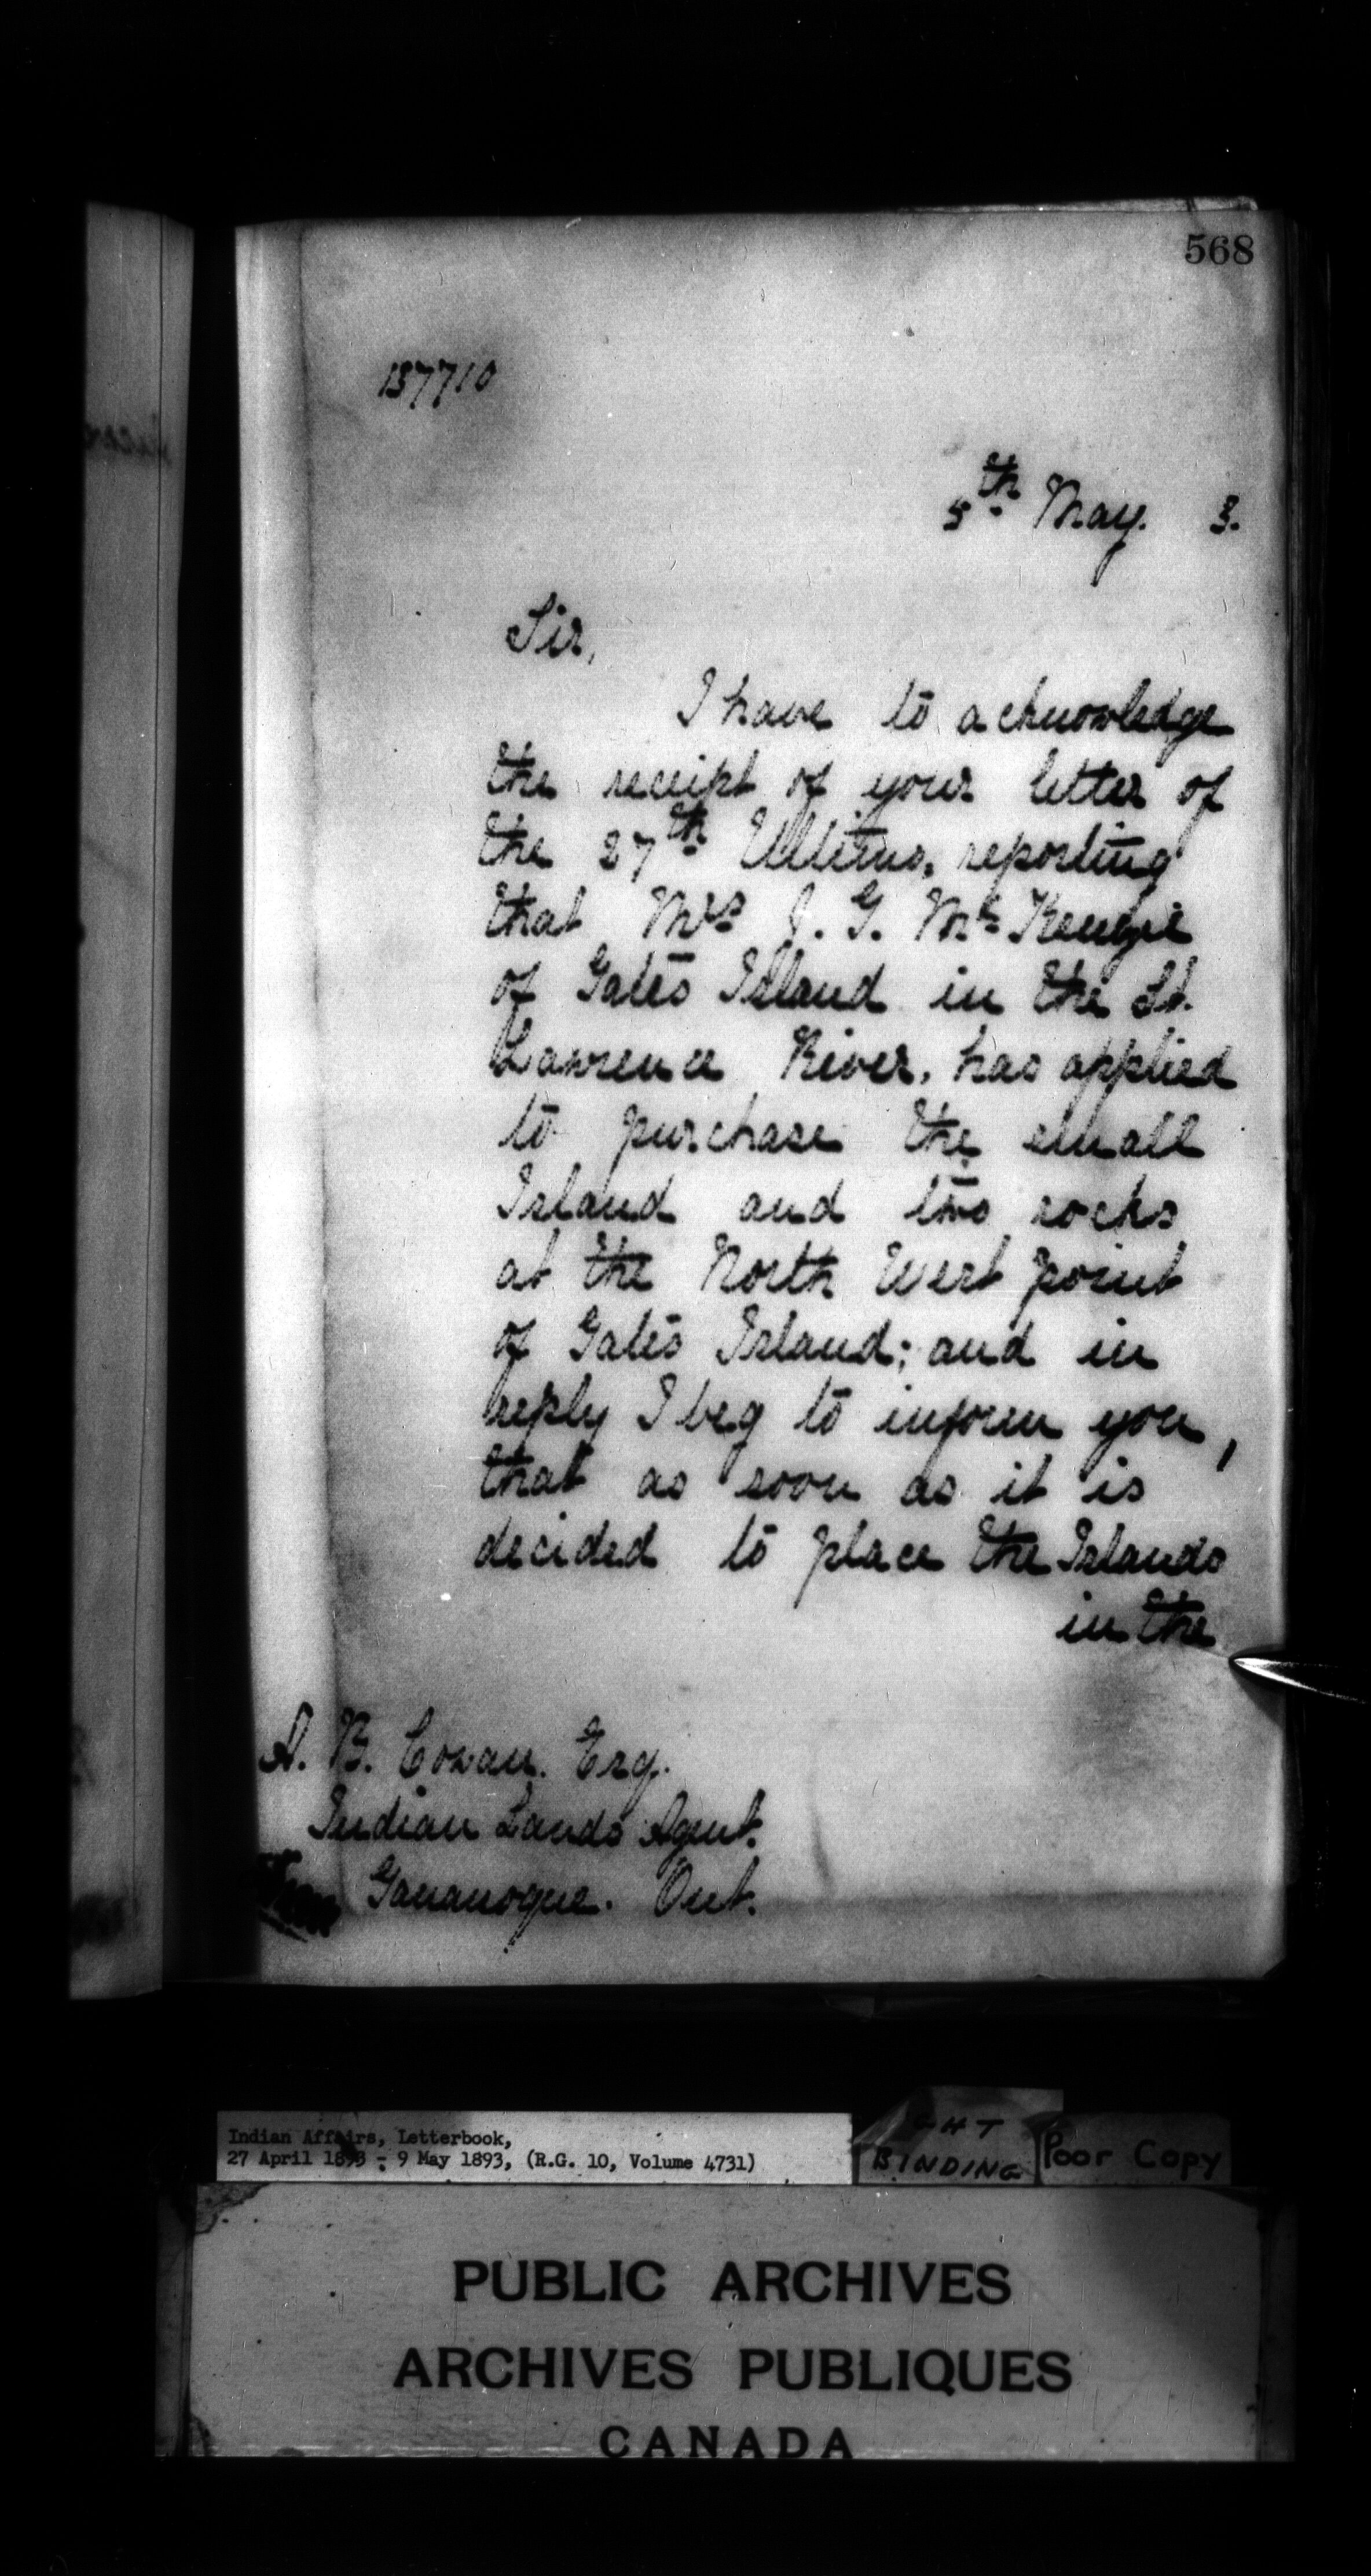 568
137710
5th May. 3.
Sir,
I have to acknowledge
the receipt of your letter of
the 27th Ultimo, reporting
that Mrs J. G. McKenzie
of Gales Island in the St.
Lawrence River, has applied
to purchase the small
Island and two rocks
at the North West point
of Gales Island; and in
reply I beg to inform you,
that as soon as it is
decided to place the Islands
in the
A. B. Cowan. Esq.
Indian Lands Agent.
Gananoque. Ont.
Indian Affairs, Letterbook,
27 April 1893 - 9 May 1893, (R.G. 10, Volume 4731)
BINDING
Poor Copy
PUBLIC ARCHIVES
ARCHIVES PUBLIQUES
CANADA